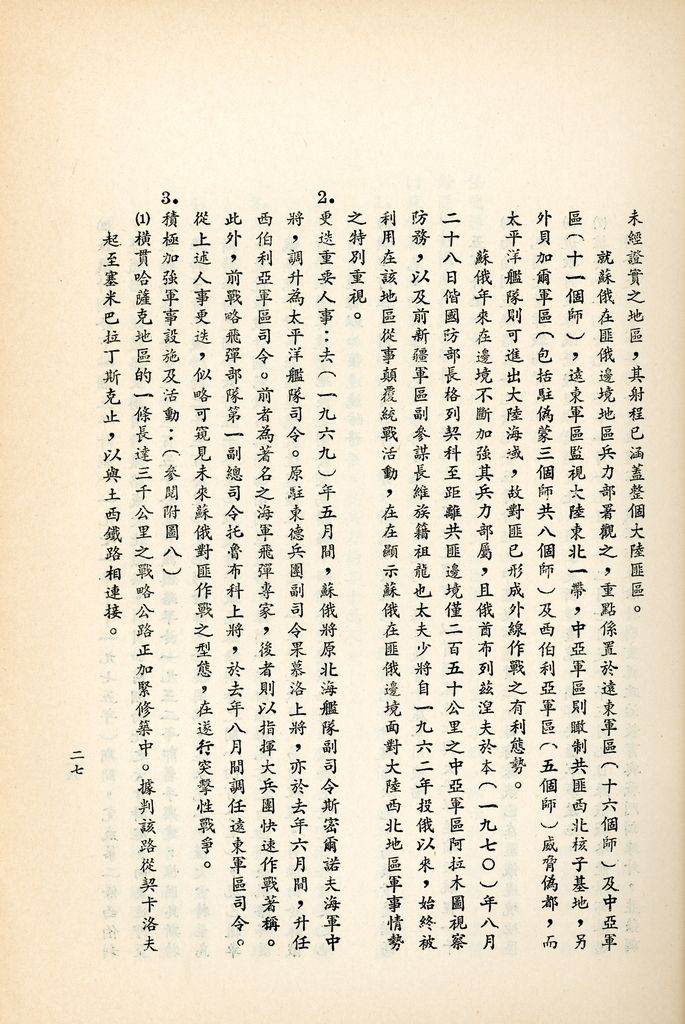 未經證實之地區，其射程已涵蓋整個大陸匪區。
就蘇俄在匪俄邊境地區兵力部署觀之，重點係置於遠東軍區（十六個師）及中亞軍
區（十一個師），遠東軍區監視大陸東北一帶，中亞軍區則瞰制共匪西北核子基地，另
外貝加爾軍區（包括駐偽蒙三個師共八個師）及西伯利亞軍區（五個師）威脅偽都，而
太平洋艦隊則可進出大陸海域，故對匪已形成外線作戰之有利態勢。
蘇俄年來在邊境不斷加強其兵力部屬，且俄酋布列茲涅夫於本（一九七〇）年八月
二十八日偕國防部長格列契科至距離共匪邊境僅二百五十公里之中亞軍區阿拉木圖視察
防務，以及前新疆軍區副參謀長維族籍祖龍也太夫少將自一九六二年投俄以來，始終被
利用在該地區從事顛覆統戰活動，在在顯示蘇俄在匪俄邊境面對大陸西北地區軍事情勢
之特別重視。
2.更迭重要人事：去（一九六九）年五月間，蘇俄將原北海艦隊副司令斯密爾諾夫海軍中
將，調升為太平洋艦隊司令。原駐東德兵團副司令果慕洛上將，亦於去年六月間，升任
西伯利亞軍區司令。前者為著名之海軍飛彈專家，後者則以指揮大兵團快速作戰著稱。
此外，前戰略飛彈部隊第一副總司令托魯布科上將，於去年八月間調任遠東軍區司令。
從上述人事更迭，似略可窺見未來蘇俄對匪作戰之型態，在遂行突擊性戰爭。
3.積極加強軍事設施及活動：（參閱附圖八）
(1)橫貫哈薩克地區的一條長達三千公里之戰略公路正加緊修築中。據判該路從契卡洛夫
起至塞米巴拉丁斯克止，以與土西鐵路相連接。
二七